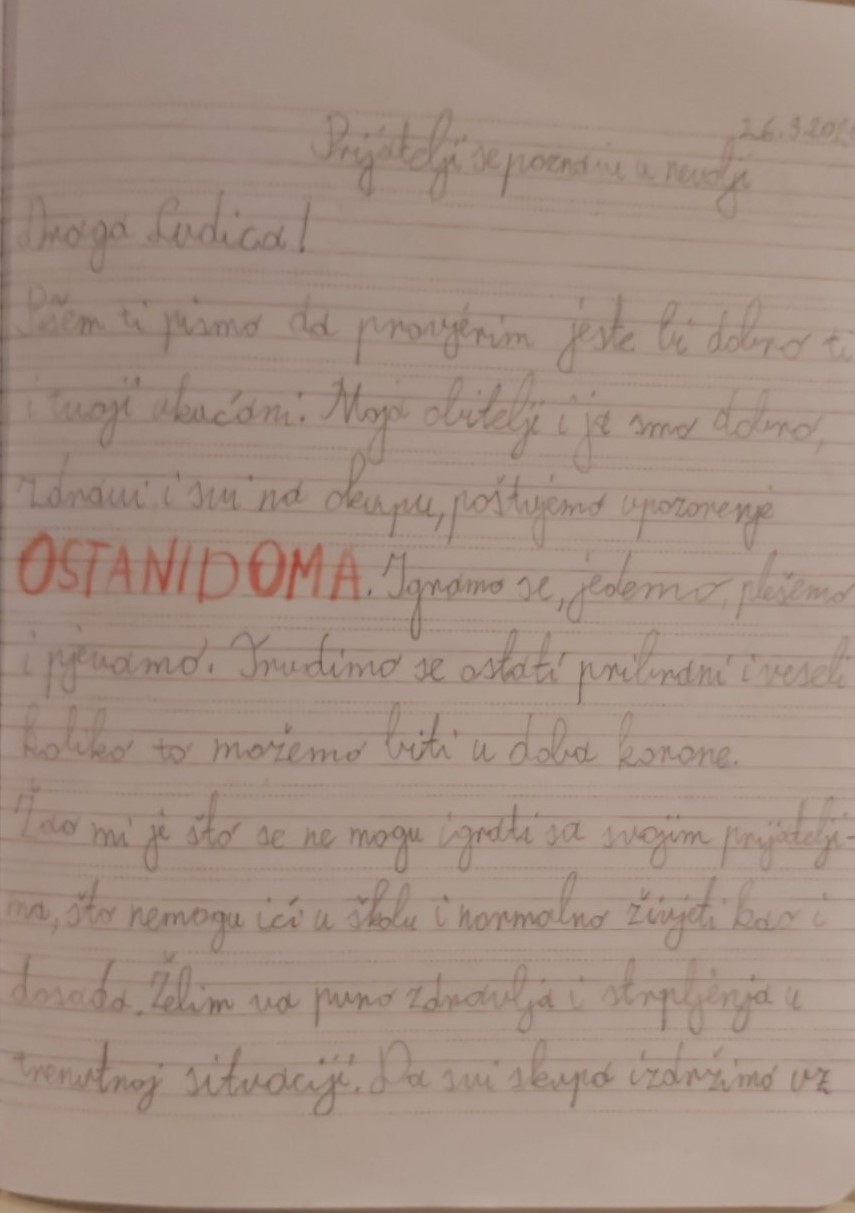 26.3.202
Prijatelji se poznaju u nevolji
Draga Ludica!
Pišem ti pismo da provjerim jeste li dobro ti
i tvoji ukućani. Moja obitelji i ja smo dobro,
zdravi i svi na okupu, poštujemo upozorenje
OSTANIDOMA. Igramo se, jedemo, plešemo
i pjevamo. Trudimo se ostati pribrani i veseli
koliko to možemo biti u doba korone.
Žao mi je što se ne mogu igrati sa svojim prijatelji-
ma, što nemogu ići u školu i normalno živjeti kao i
dosada. Želim va puno zdravlja i strpljenja u
trenutnoj situaciji. Da svi skupa izdržimo uz